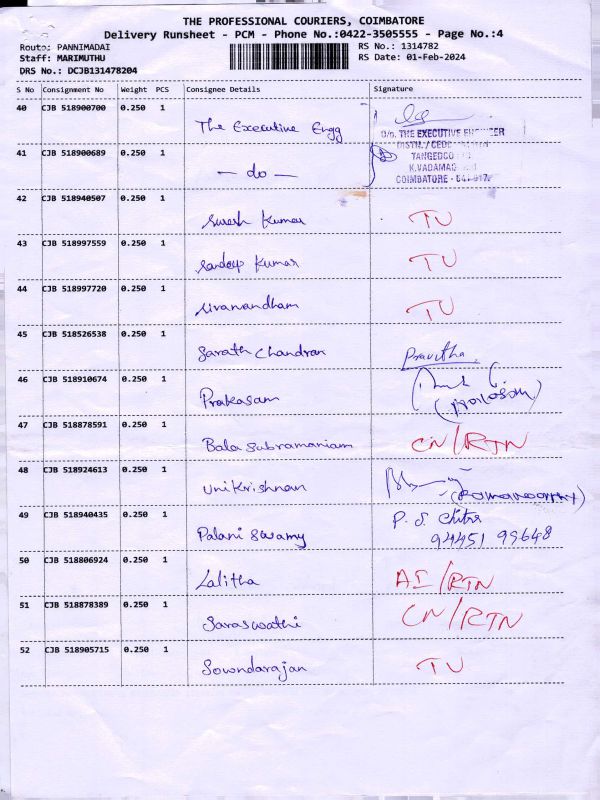 THE PROFESSIONAL COURIERS, COIMBATORE
Delivery Runsheet - PCM - Phone No.:0422-3505555 - Page No.:4
Route: PANNIMADAI
RS No.: 1314782
Staff: MARIMUTHU
RS Date: 01-Feb-2024
DRS No.: DCJB131478204
S No Consignment No Weight PCS Consignee Details Signature
40 CJB 518900700 0.250 1 The Executive Engg
O/o. THE EXECUTIVE ENGINEER
DISTN./ CEDC
TANGEDCO
K.VADAMAD
COIMBATORE - 641 017.
41 CJB 518900689 0.250 1 - do -
42 CJB 518940507 0.250 1 Suresh Kumar TU
43 CJB 518997559 0.250 1 Sandeep Kumar TU
44 CJB 518997720 0.250 1 Sivanandham TU
45 CJB 518526538 0.250 1 Sarath Chandran Pravitha
46 CJB 518910674 0.250 1 Prakasam
47 CJB 518878591 0.250 1 Bala Subramaniam CN/RTN
48 CJB 518924613 0.250 1 Unikrishnan
49 CJB 518940435 0.250 1 Palani Swamy P. S. Chitra
94451 99648
50 CJB 518806924 0.250 1 Lalitha AI/RTN
51 CJB 518878389 0.250 1 Saraswathi CN/RTN
52 CJB 518905715 0.250 1 Sowndarajan TU